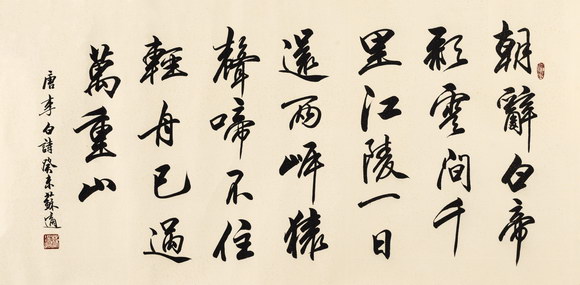 朝辭白帝
彩雲間千
里江陵一日
還兩岸猿
聲啼不住
輕舟已過
萬重山
唐李白詩癸未蘇適